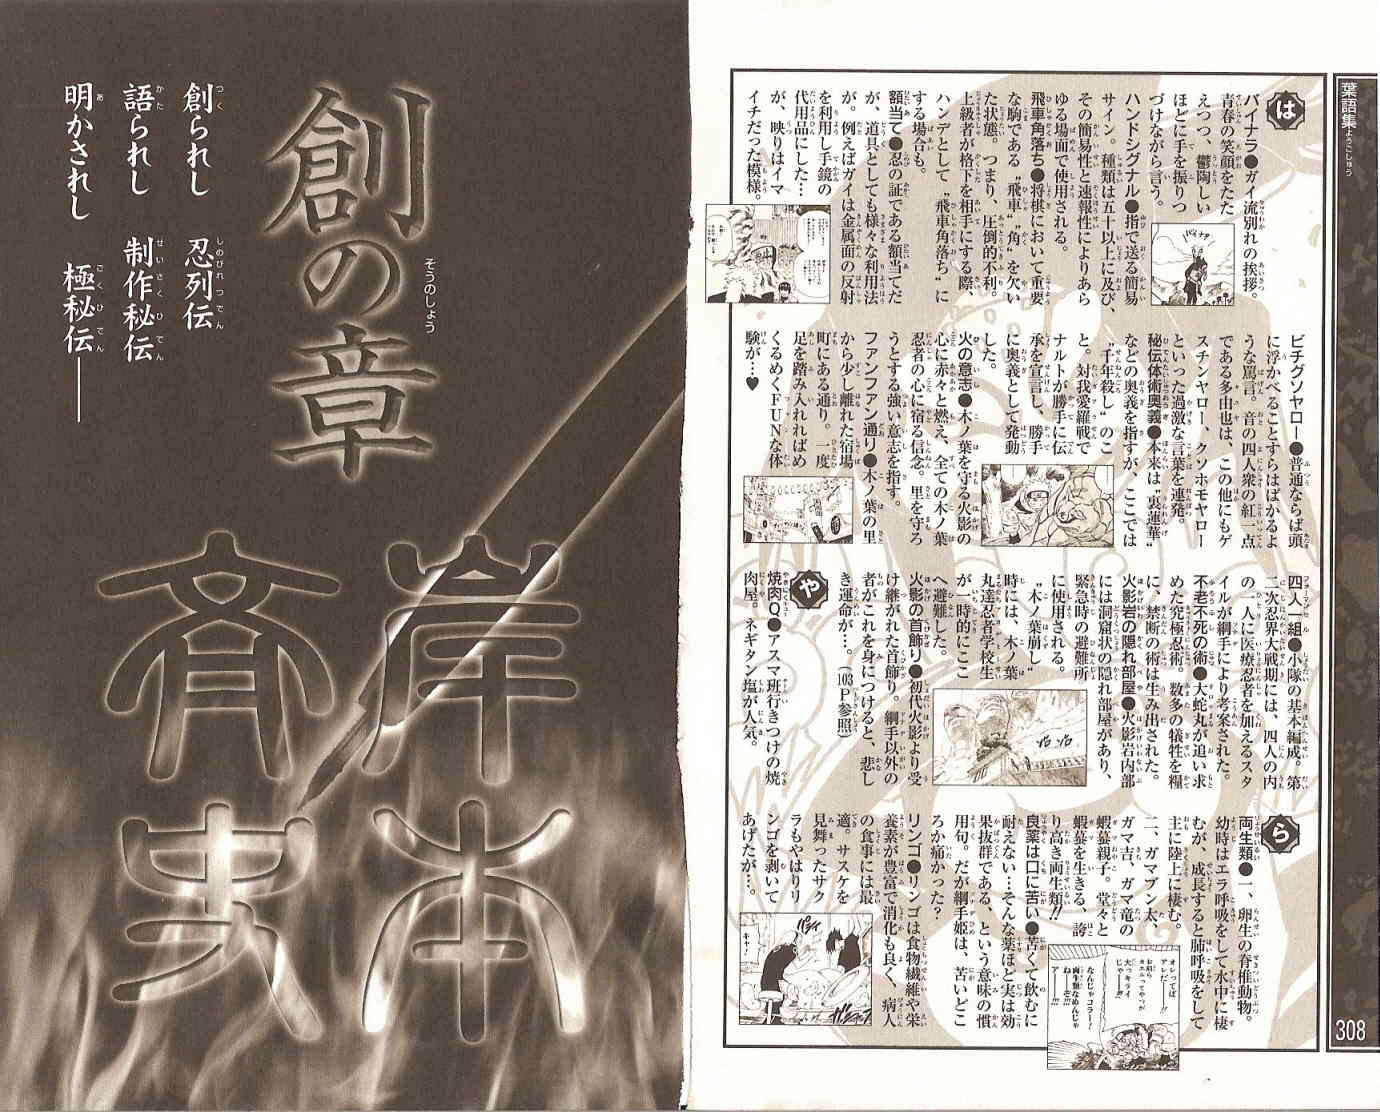 葉語集
308
は
バイナラ●ガイ流別れの挨拶。
青春の笑顔をたた
えつつ、鬱陶しい
ほどに手を振りつ
づけながら言う。
ハンドシグナル●指で送る簡易
サイン。種類は五十以上に及び、
その簡易性と速報性によりあら
ゆる場面で使用される。
飛車角落ち●将棋において重要
な駒である〝飛車〟〝角〟を欠い
た状態。つまり、圧倒的不利。
上級者が格下を相手にする際、
ハンデとして〝飛車角落ち〟に
する場合も。
額当て●忍の証である額当てだ
が、道具としても様々な利用法
が。例えばガイは金属面の反射
を利用し手鏡の
代用品にした…
が、映りはイマ
イチだった模様。
ビチグソヤロー●普通ならば頭
に浮かべることすらはばかるよ
うな罵言。音の四人衆の紅一点
である多由也は、この他にもゲ
スチンヤロー、クソホモヤロー
といった過激な言葉を連発。
秘伝体術奥義●本来は〝裏蓮華〟
などの奥義を指すが、ここでは
〝千年殺し〟のこ
と。対我愛羅戦で
ナルトが勝手に伝
承を宣言し、勝手
に奥義として発動
した。
火の意志●木ノ葉を守る火影の
心に赤々と燃え、全ての木ノ葉
忍者の心に宿る信念。里を守ろ
うとする強い意志を指す。
ファンファン通り●木ノ葉の里
から少し離れた宿場
町にある通り。一度
足を踏み入れればめ
くるめくFUNな体
験が…♥
四人一組●小隊の基本編成。第
二次忍界大戦期には、四人の内
の一人に医療忍者を加えるスタ
イルが綱手により考案された。
不老不死の術●大蛇丸が追い求
めた究極忍術。数多の犠牲を糧
に、禁断の術は生み出された。
火影岩の隠れ部屋●火影岩内部
には洞窟状の隠れ部屋があり、
緊急時の避難所
に使用される。
〝木ノ葉崩し〟
時には、木ノ葉
丸達忍者学校生
が一時的にここ
へ避難した。
火影の首飾り●初代火影より受
け継がれた首飾り。綱手以外の
者がこれを身につけると、悲し
き運命が…。(103P参照)
や
焼肉Q●アスマ班行きつけの焼
肉屋。ネギタン塩が人気。
ら
両生類●一、卵生の脊椎動物。
幼時はエラ呼吸をして水中に棲
むが、成長すると肺呼吸をして
主に陸上に棲む。
二、ガマブン太、
ガマ吉、ガマ竜の
蝦蟇親子。堂々と
蝦蟇を生きる、誇
り高き両生類!!
良薬は口に苦い●苦くて飲むに
耐えない…そんな薬ほど実は効
果抜群である、という意味の慣
用句。だが綱手姫は、苦いどこ
ろか痛かった？
リンゴ●リンゴは食物繊維や栄
養素が豊富で消化も良く、病人
の食事には最
適。サスケを
見舞ったサク
ラもやはりリ
ンゴを剥いて
あげたが…。
創の章
そうのしょう
創られし　忍列伝
語られし　制作秘伝
明かされし　極秘伝――
岸本
斉史